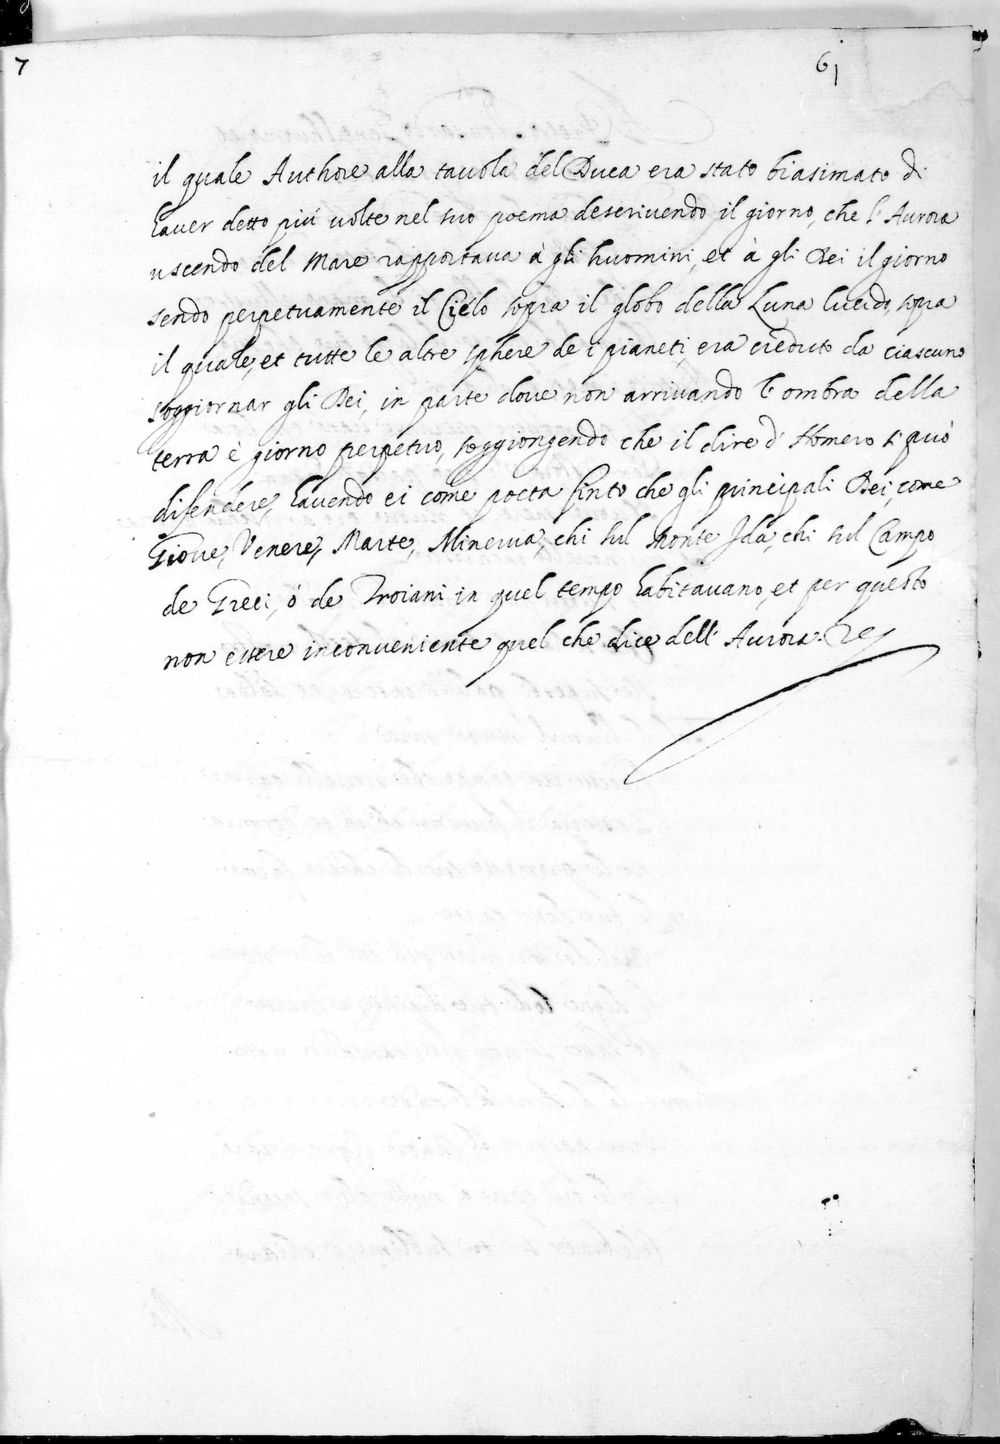 7
61
il quale Authore alla tauola del Duca era stato biasimato di
hauer detto più uolte nel suo poema descriuendo il giorno, che l'Aurora
uscendo del Mare rapportaua à gli huomini, et à gli Dei il giorno
sendo perpetuamente il Cielo sopra il globo della Luna lucido, sopra
il quale, et tutte le altre sphere de i pianeti, era creduto da ciascuno
soggiornar gli Dei, in parte doue non arriuando l'ombra della
terra è giorno perpetuo, soggiongendo che il dire d'Homero si può
difendere, hauendo ei come poeta finto che gli principali Dei, come
Gioue, Venere, Marte, Minerua, chi sul Monte Ida, chi sul Campo
de Greci, ó de Troiani in quel tempo habitauano, et per questo
non essere inconueniente quel che dice dell'Aurora.